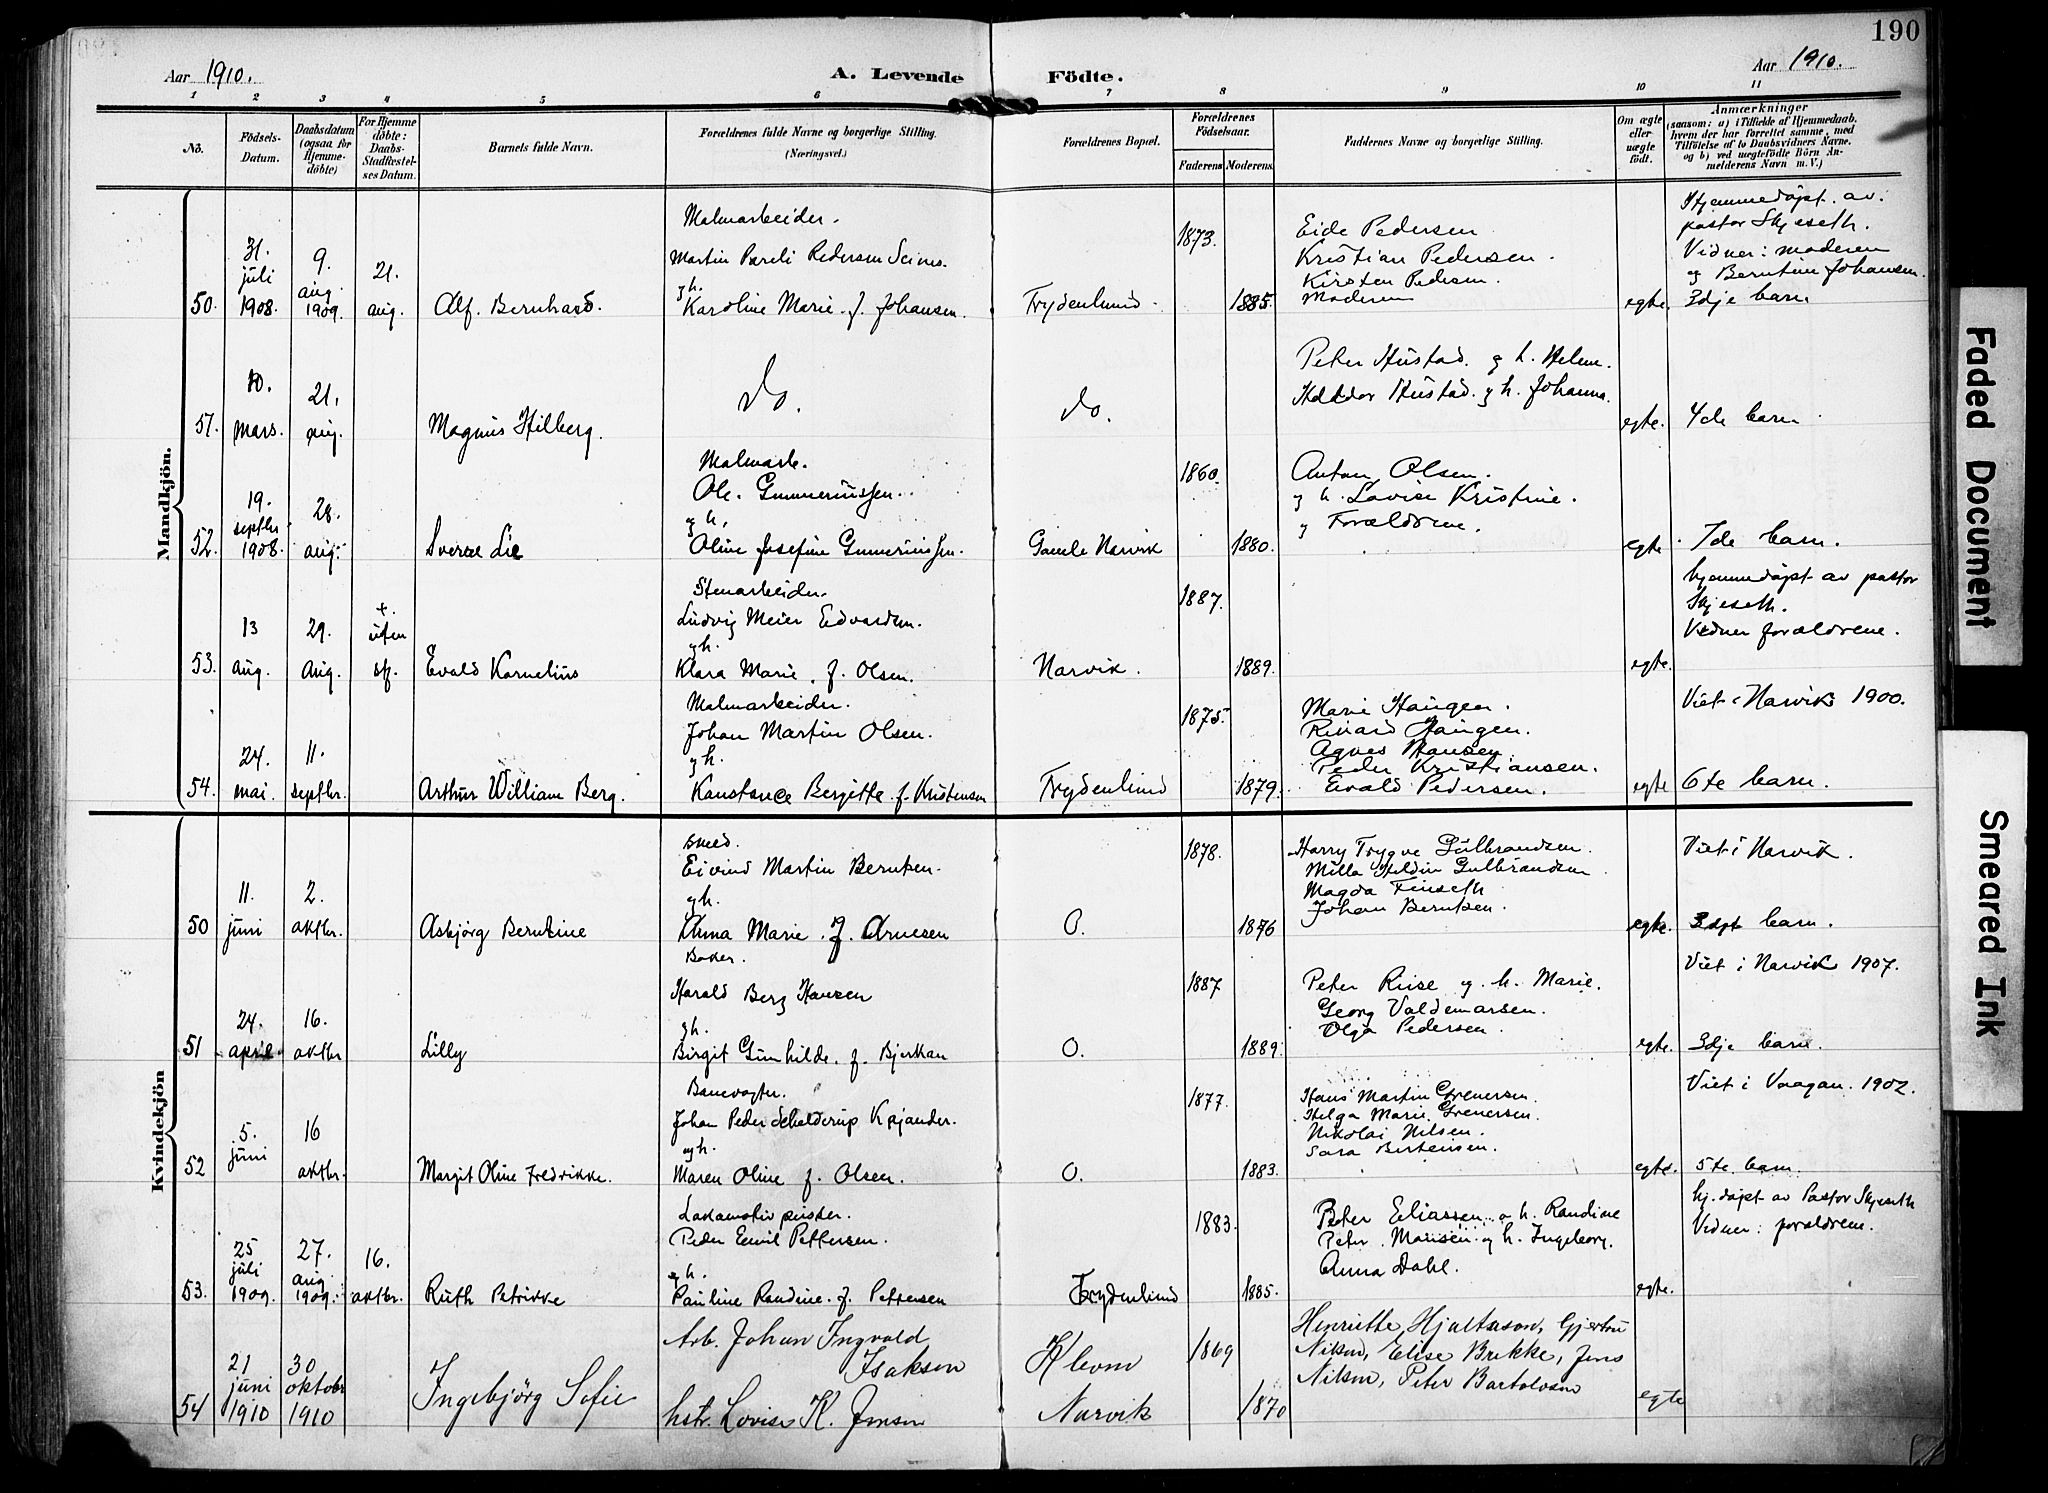 190
Aar 1910.
A. Levende Födte.
Aar 1910.
1 2 3 4 5 6 7 8 9 10 11
No.
Födsels-Datum.
Daabsdatum (ogsaa for Hjemme-döbte)
For Hjemme döbte: Daabs-Stadfæstel-ses Datum.
Barnets fulde Navn.
Forældrenes fulde Navne og borgerlige Stilling.
(Næringsvei.)
Forældrenes Bopæl.
Forældrenes Födselsaar.
Faderens Moderens
Faddernes Navne og borgerlige Stilling.
Om ægte eller uægte födt.
Anmærkninger
(saasom: a) i Tilfælde af Hjemmedaab,
hvem der har forrettet samme, med
Tilföielse af to Daabsvidners Navne,
og b) ved uægtefödte Börn An-
melderens Navn m. V.)
Mandkjön.
50. 31. juli 1908. 9. aug. 1909. 21. aug. Alf. Bernhard.
Malmarbeider.
Martin Pareli Pedersen Seines.
gh.
Karoline Marie f. Johansen.
Frydenlund. 1873. 1885.
Eide Pedersen
Kristian Pedersen.
Kirsten Pedersen.
Moderen
egte.
Hjemmedøpt. av.
pastor Skjeseth.
Vidner: moderen
og Berntine Johansen.
3dje barn
51. 10. mars. 21. aug. Magnus Hilberg.
do. do.
Peter Hustad. og h. Helene.
Haldor Hustad. og h. Johanna.
egte. 4de barn
52. 19. septbr. 1908. 28. aug. Sverre Lie
Malmarb.
Ole Gunneriussen.
gh.
Oline Josefine Gunneriussen.
Gamle Narvik 1860. 1880.
Anton Olsen.
og h. Lovise Kristine.
og Forældrene.
egte 7de barn.
53. 13 aug. 29. aug. +. uten stf. Evald Kornelius
Stenarbeider.
Ludvig Meier Edvardsen.
gh.
Klara Marie. f. Olsen.
Narvik. 1887. 1889.
egte.
hjemmedøpt av pastor
Skjeseth.
Vidner forældrene.
54. 24. mai. 11. septbr. Arthur William Berg.
Malmarbeider.
Johan Martin Olsen.
gh.
Konstance Bergitte f. Kristensen
Frydenlund 1875. 1879.
Marie Haugen.
Rikard Haugen.
Agnes Hansen
Peder Kristiansen.
Evald Pedersen.
egte
Viet i Narvik 1900.
6te barn.
Kvindekjön
50 11. juni 2. oktbr. Asbjørg Berntine
smed.
Eivind Martin Berntsen.
gh.
Anna Marie. f. Arnesen
O. 1878. 1876
Harry Trygve Gulbrandsen.
Milla Heldin Gulbrandsen
Magda Finseth
Johan Berntsen.
egte.
Viet i Narvik.
barn.
51 24. april 16. oktbr Lilly
Baker.
Harald Berg Hansen
gh.
Birgit Gunhilde. f. Bjerkan
O. 1887 1889.
Peter Riise og h. Marie.
Georg Valdemarsen.
Olga Pedersen.
egte.
Viet i Narvik 1907.
3dje barn.
52 5. juni 16 oktbr. Margit Oline Fredrikke.
Banevogter.
Johan Peder Schelderup Kjander.
ogh.
Maren Oline f. Olsen.
O. 1877. 1883.
Hans Martin Grenersen.
Helga Marie Grenersen.
Nikolai Nilsen.
Sara Bertensen.
egte.
Viet i Vaagan. 1902.
5te. barn.
53. 25 juli 1909. 27. aug. 1909. 16. oktbr. Ruth Petrikke
Lokomotiv
Peder Emil Pettersen.
gh.
Pauline Randine. f. Pettersen
Frydenlund 1883. 1885.
Peter Eliassen og h. Randine
Peter Monsen og h. Ingeborg.
Anna Dahl.
egte.
hj. døpt av Pastor Skjeseth
Vidner: forældrene.
54 21 juni 1910 30 oktober 1910 Ingebjörg Sofie
Arb. Johan Ingvald
Isaksen
hstr. Lovise K. Jensen
Narvik 1869 1870
Henriette Hjaltason, Gjertru
Nilsen, Elise Brekke, Jens
Nilsen, Peter Bartolosen
egte
Faded Document
Smeared Ink